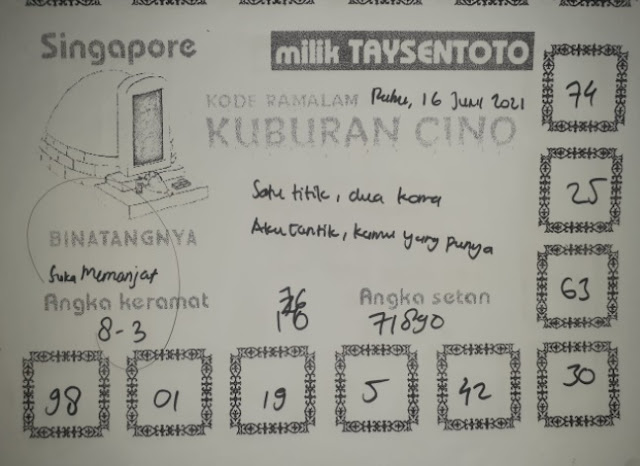 Singapore
milik TAYSENTOTO
KODE RAMALAM Rabu, 16 Juni 2021
KUBURAN CINO
74
Satu titik, dua koma
25
Aku Cantik, kamu yang punya
BINATANGNYA
Suka Memanjat
Angka keramat
8-3
76
10
Angka setan
71890
63
98
01
19
5
42
30